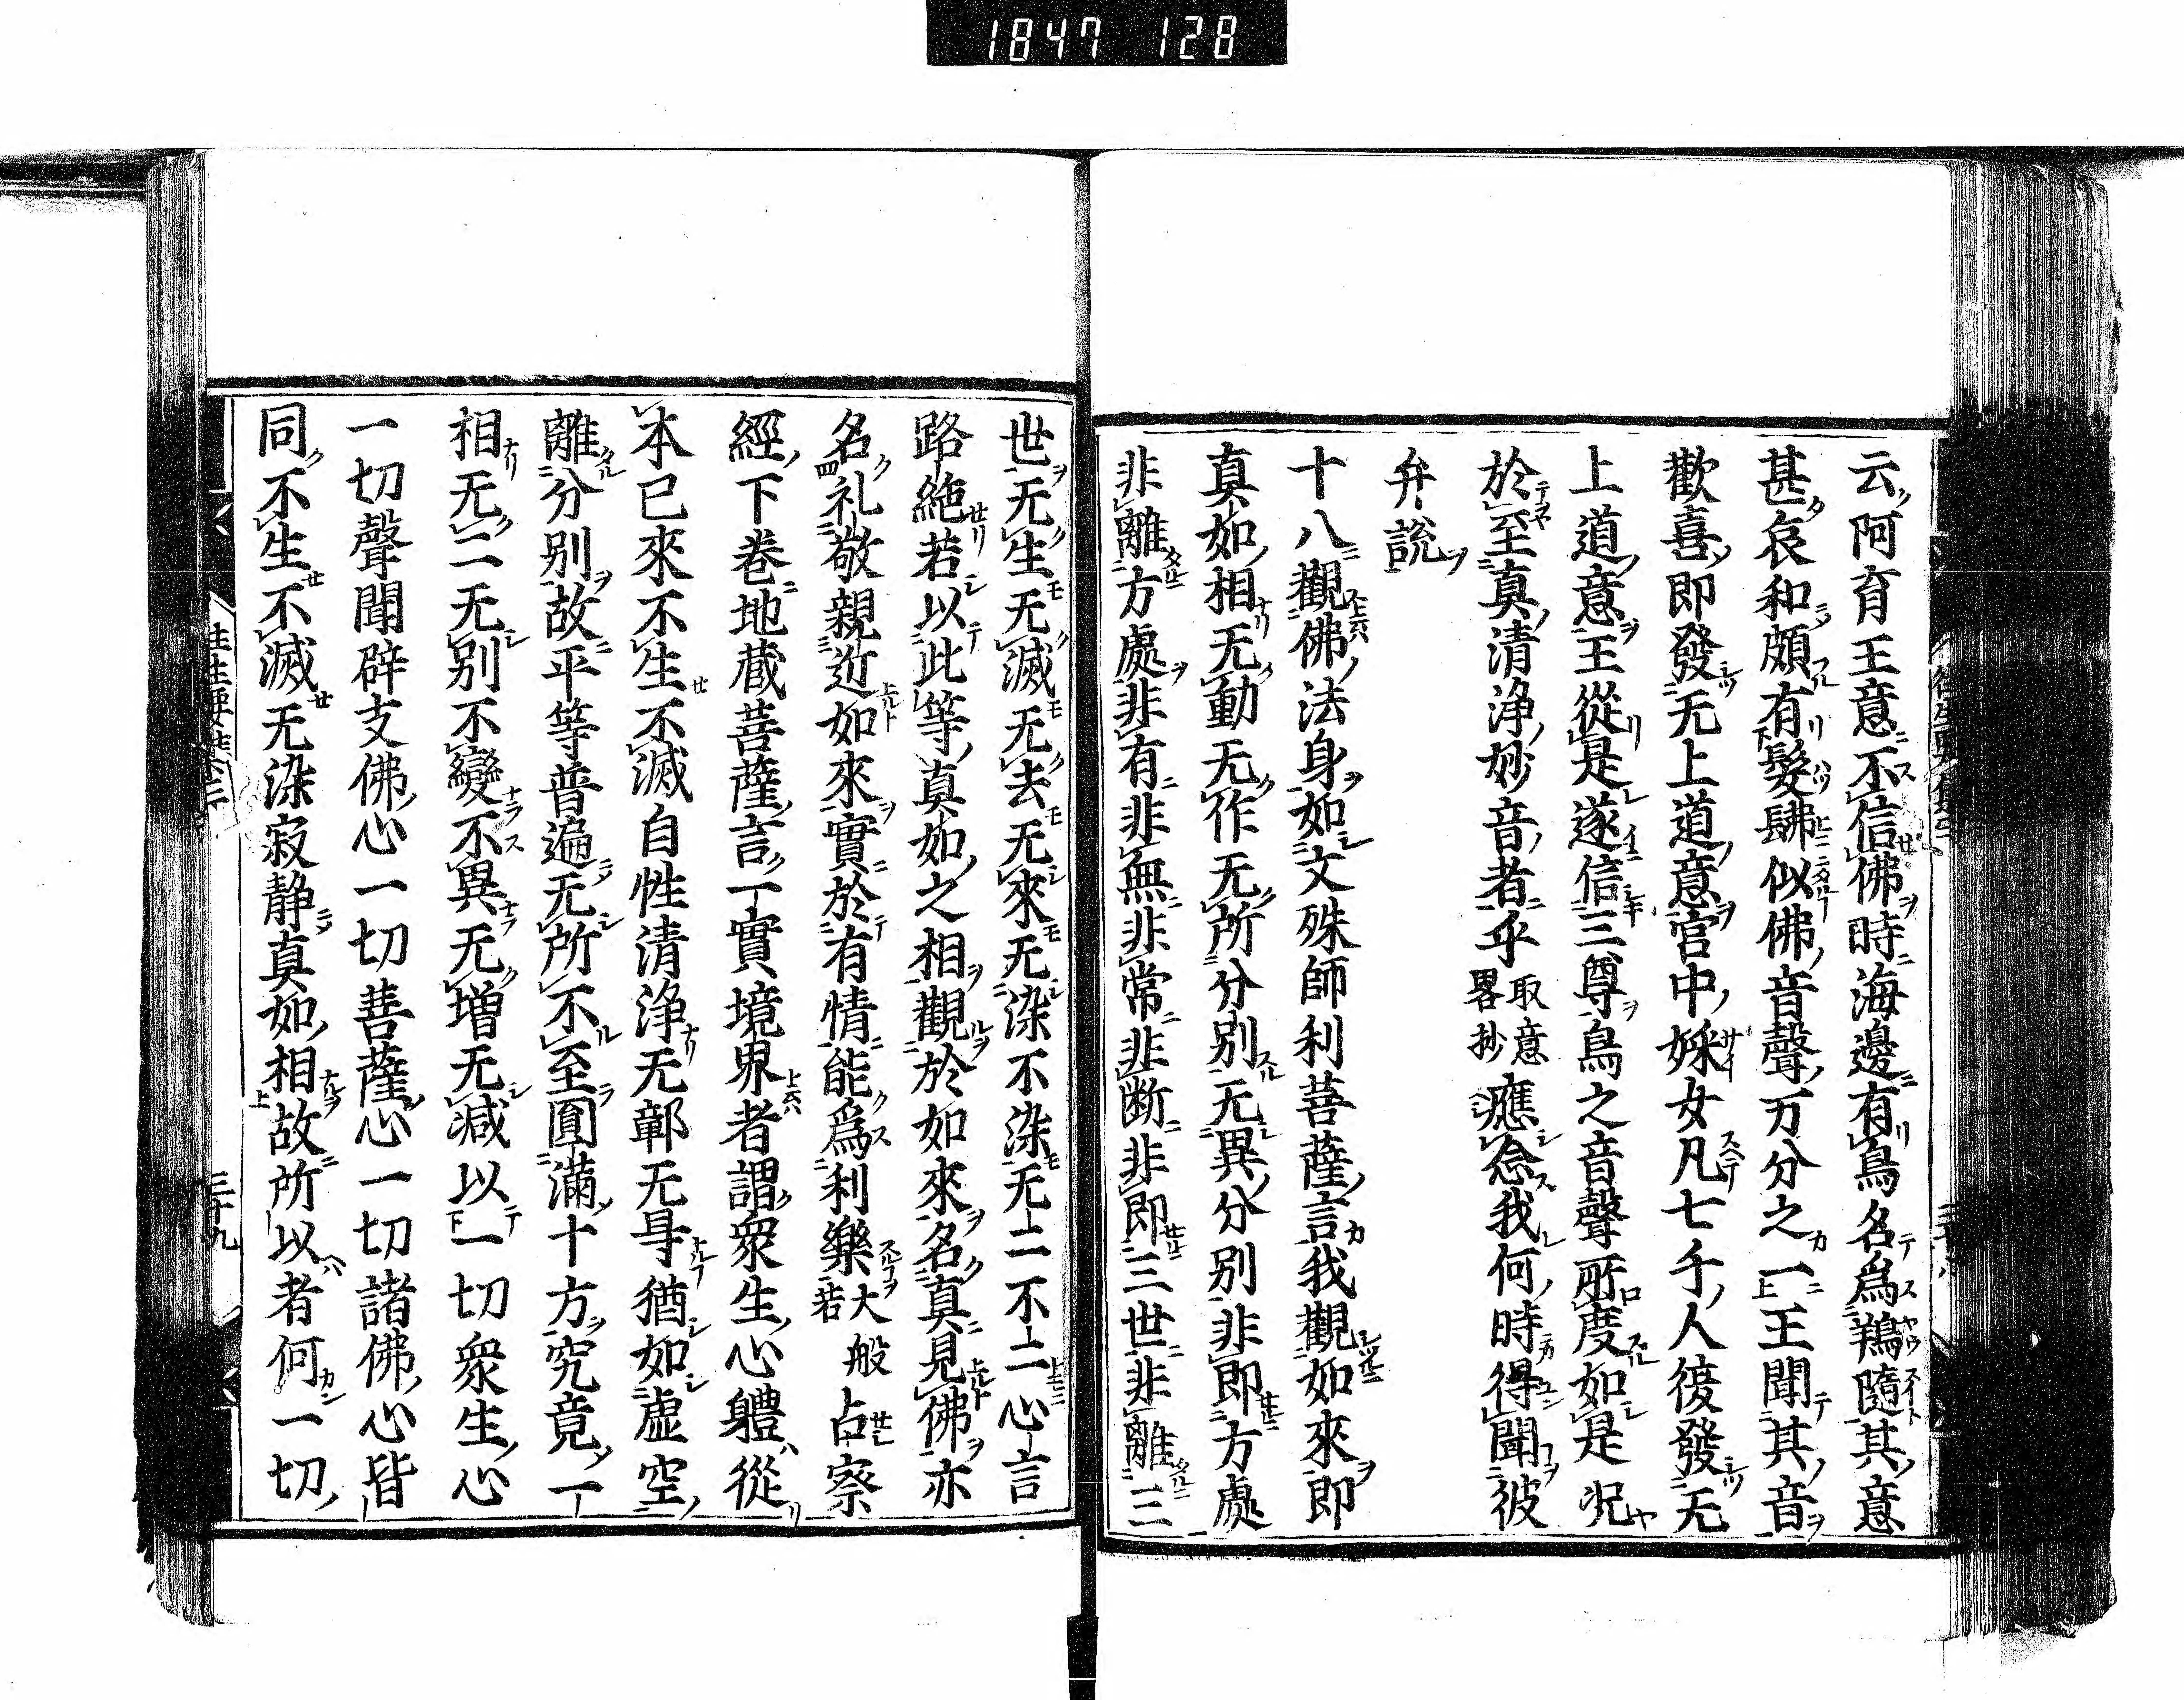 1847 128
云阿育王意不信佛時海邊有鳥名爲鶏隨其意
甚哀和頗有髣髴似佛音聲万分之一王聞其音
歡喜即發无上道意宮中婇女凡七千人復發无
上道意王從是遂信三尊鳥之音聲所度如是况
於至真清浄妙音者乎取意畧抄應念我何時得聞彼
弁説
十八觀佛法身如文殊師利菩薩言我觀如來即
真如相无動无作无所分別无異分別非即方處
非離方處非有非無非常非断非即三世非離三
世无生无滅无去无來无染不染无二不二心言
路絶若以此等真如之相觀於如來名真見佛亦
名礼敬親近如來實於有情能爲利樂大般若占察
經下巻地蔵菩薩言一實境界者謂衆生心體從
本已來不生不滅自性清浄无鄣无㝵猶如虚空
離分別故平等普遍无所不至圓滿十方究竟一
相无二无別不變不異无増无減以一切衆生心
一切聲聞辟支佛心一切菩薩心一切諸佛心皆
同不生不滅无染寂静真如相故所以者何一切
三十九